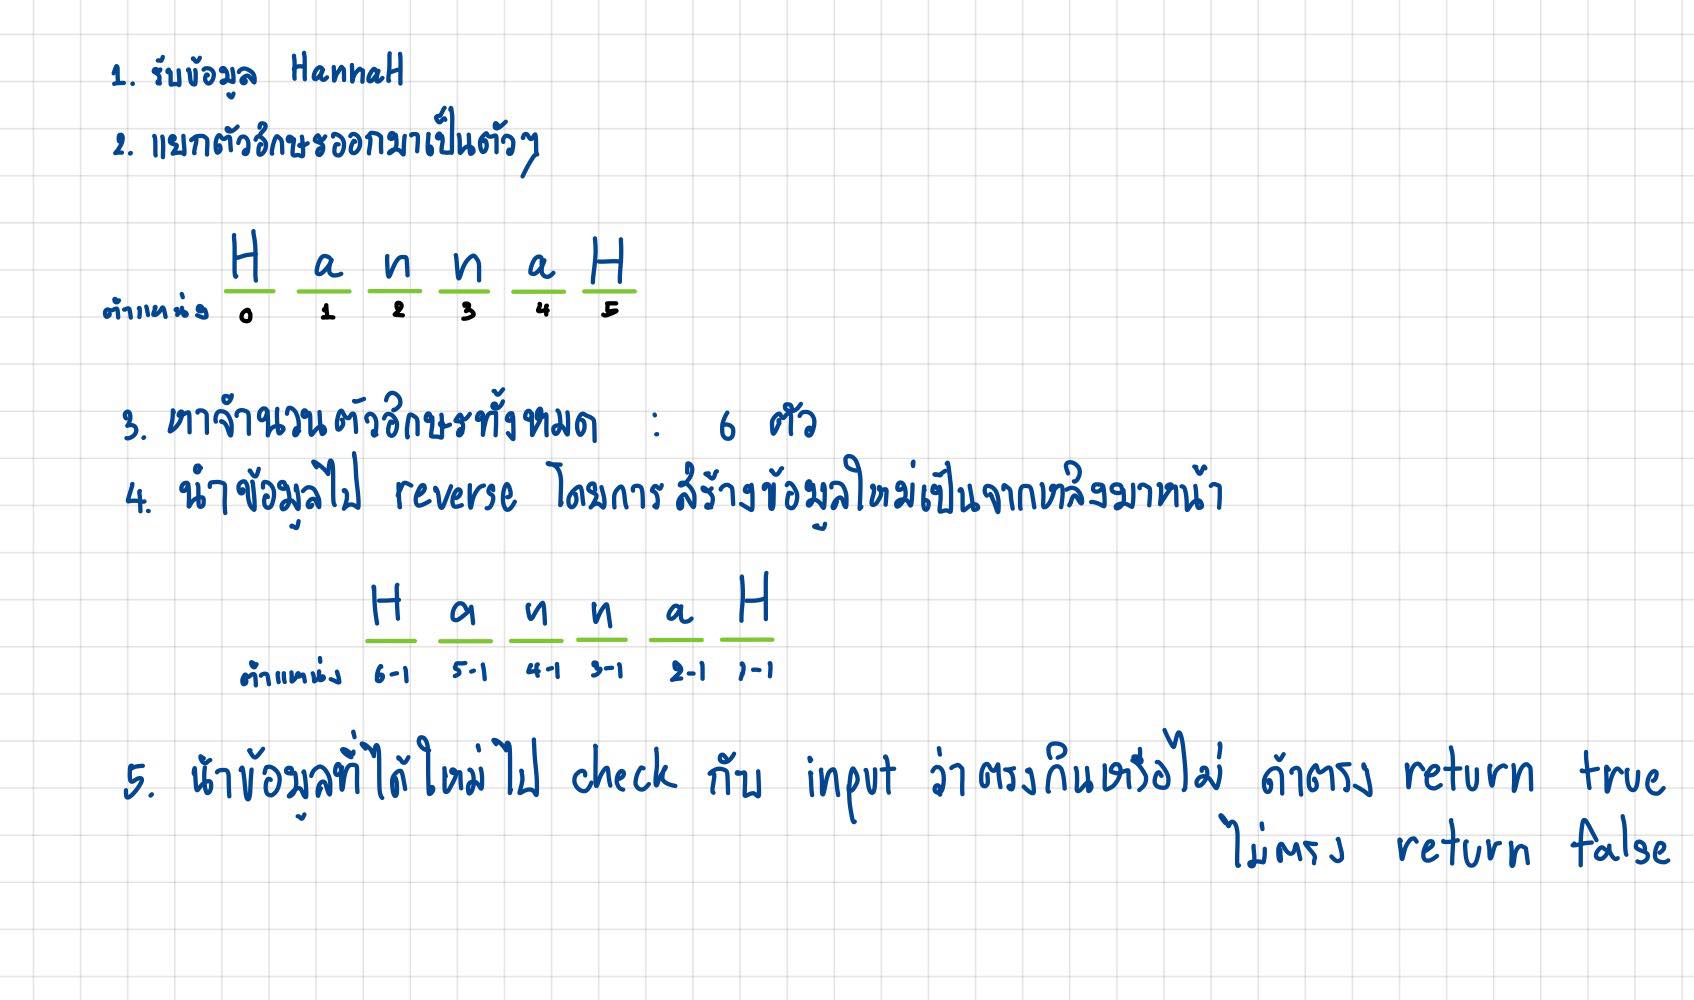 1. รับข้อมูล HannaH
2. แยกตัวอักษรออกมาเป็นตัวๆ
H a n n a H
ตำแหน่ง 0 1 2 3 4 5
3. หาจำนวนตัวอักษรทั้งหมด : 6 ตัว
4. นำข้อมูลไป reverse โดยการสร้างข้อมูลใหม่เป็นจากหลังมาหน้า
H a n n a H
ตำแหน่ง 6-1 5-1 4-1 3-1 2-1 1-1
5. นำข้อมูลที่ได้ใหม่ไป check กับ input ว่าตรงกันหรือไม่ ถ้าตรง return true
ไม่ตรง return false